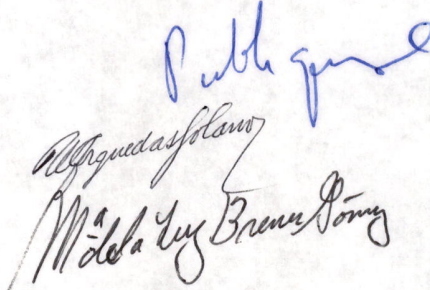 Publíquese
Arguedas Solano
Mª de la Luz Brenes Gómez